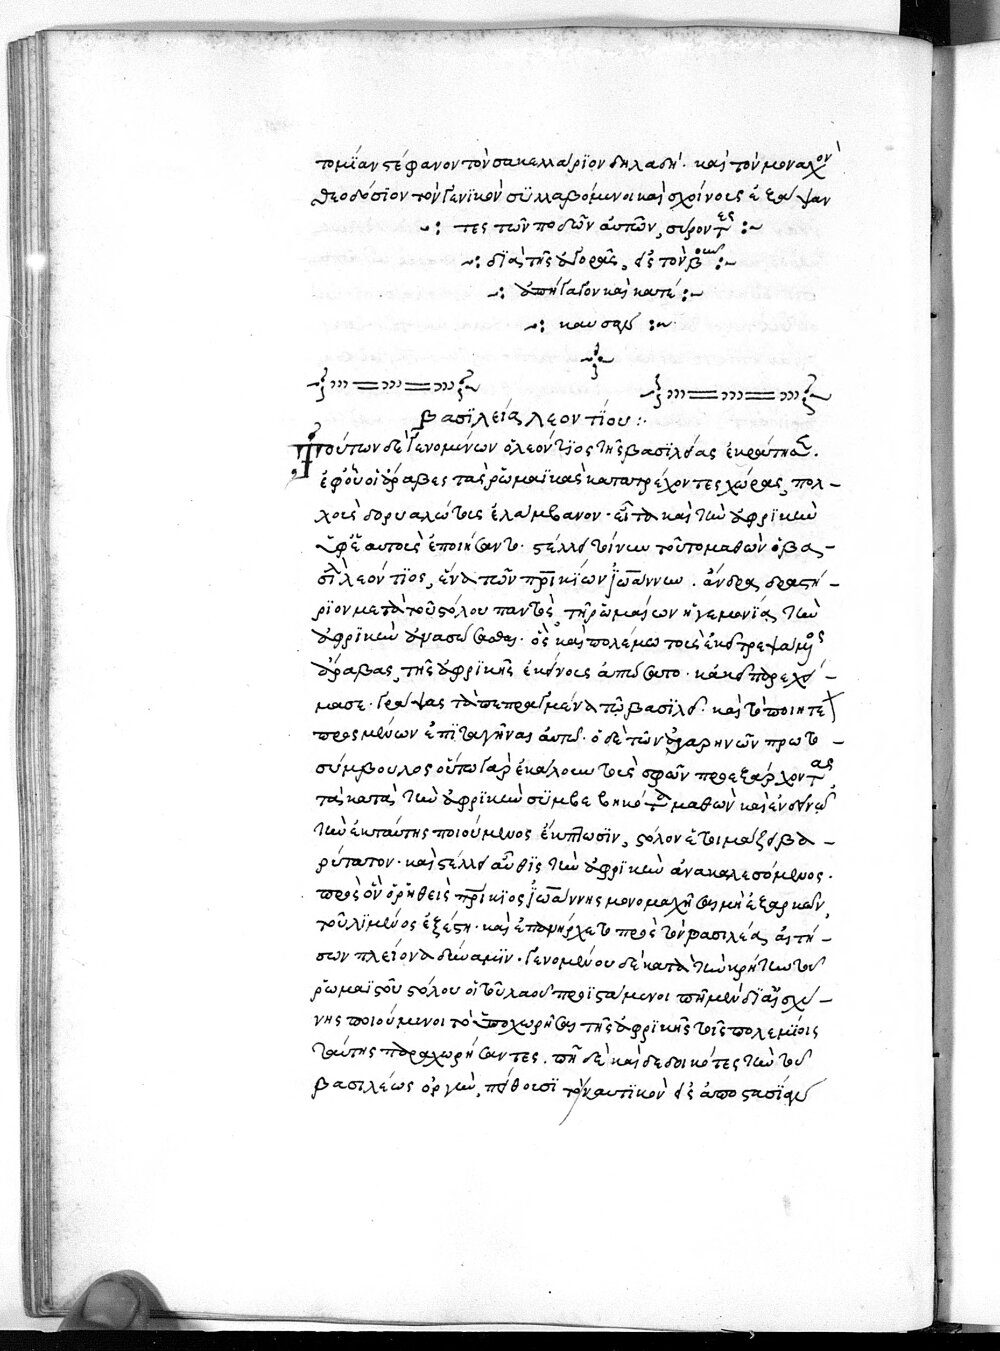 τομίαν στέφανον τὸν σακελλάριον δηλαδή· καὶ τὸν μοναχὸν
θεοδόσιον τὸν γενϊκὸν συλλαβόμενοι καὶ σχοίνοις ἐξάψαν
τες τῶν ποδῶν αὐτῶν, σύροντες
διὰ τῆς ἀγορᾶς, εἰς τὸν βοῦν
ἀπήγαγον καὶ κατέ
καυσαν
βασϊλεία λεοντίου :
Τούτων δὲ γενομένων ὁ λεόντϊος τῆς βασϊλείας ἐκράτησεν.
ἐφ' οὗ οἱ ἄραβες τὰς ῥωμαϊκὰς κατατρέχοντες χώρας, πολ
λοὺς δορυαλώτους ἐλάμβανον· εἶτα καὶ τὴν ἀφρϊκὴν
ὑφ' ἑαυτοὺς ἐποιήσαντο· στέλλει τοίνυν τοῦτο μαθὼν ὁ βα
σϊλεὺς λεόντϊος, ἕνα τῶν πρϊκίων ἰωάννην. ἄνδρα δραστή
ρϊον μετὰ τοῦ στόλου παντὸς, τῇ ῥωμαίων ἡγεμονίᾳ τὴν
ἀφρϊκὴν ἀνασώσασθαι· ὃς καὶ πολέμω τοὺς ἐκεῖ τρεψάμενος
ἄραβας, τῆς ἀφρϊκῆς ἐκείνους ἀπώσατο· κἀκεῖ παρεχεί
μασε· γράψας τὰ πεπραγμένα τῷ βασϊλεῖ· καὶ τὸ ποιητέον
προσμένων ἐπϊταγῆναι αὐτῷ· ὁ δὲ τῶν ἀγαρηνῶν πρωτο
σύμβουλος οὕτω γὰρ ἐκάλουν τοὺς σφῶν προεξάρχοντας
τὰ κατὰ τὴν ἀφρϊκὴν συμβεβηκότα μαθὼν καὶ ἐν δεινῷ
τὴν ἐκ ταύτης ποιούμενος ἔκπτωσϊν, στόλον ἑτοιμάζει βα
ρύτατον· καὶ στέλλει αὖθϊς τὴν ἀφρϊκὴν ἀνακαλεσόμενος·
πρὸς ὃν ὁ ῥηθεὶς πρϊκϊος ἰωάννης μονομαχῆσαι μὴ ἐξαρκῶν,
τοῦ λϊμένος ἐξέστη· καὶ ἐπανήρχετο πρὸς τὸν βασιλέα, αἰτή
σων πλείονα δύναμϊν· γενομένου δὲ κατὰ τὴν κρήτην τοῦ
ῥωμαϊκοῦ στόλου οἱ τοῦ λαοῦ προϊστάμενοι πῆ μὲν δϊ' αἰσχύ
νης ποιούμενοι τὸ ὑποχωρῆσαι τῆς ἀφρϊκῆς τοῖς πολεμίοις
ταύτης παραχωρήσαντες. πῆ δὲ καὶ δεδοικότες τὴν τοῦ
βασιλέως ὀργὴν, πείθουσϊ τὸ ναυτϊκὸν εἰς ἀποστασίαν